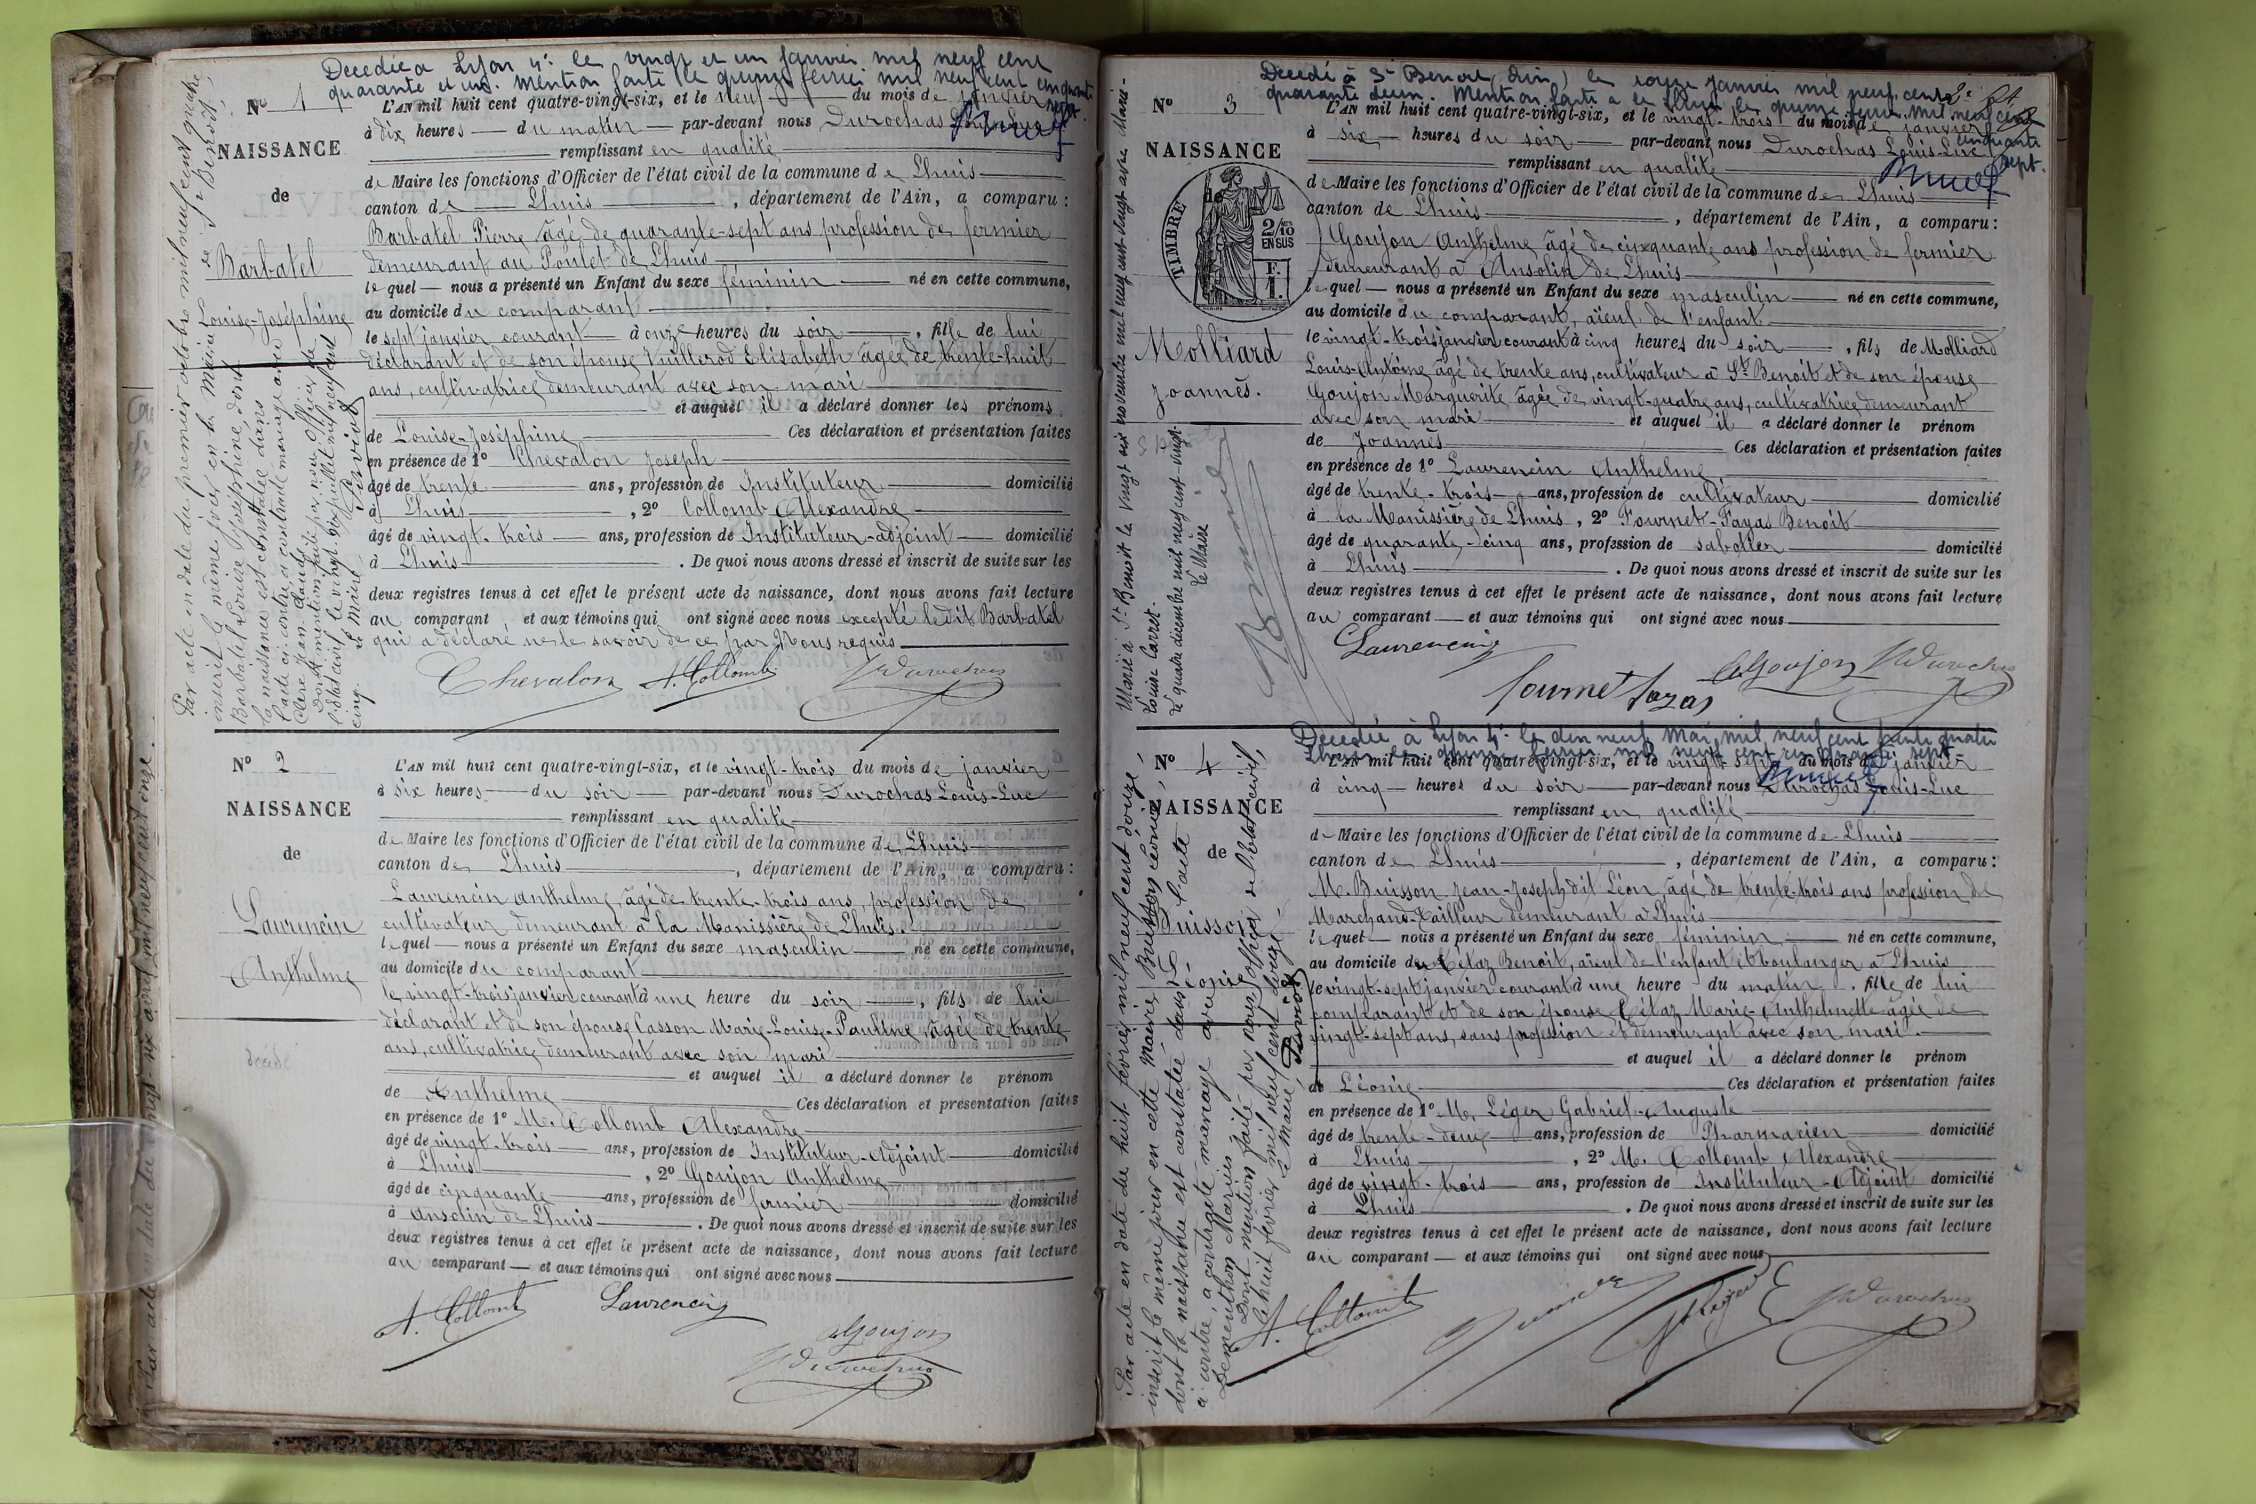 Décédée à Lyon 4e le vingt et un janvier mil neuf cent
quarante et un. Mention faite le quinze février mil neuf cent cinquante
sept.
N° 1
L'AN mil huit cent quatre-vingt-six, et le neuf du mois de janvier
à dix heures du matin par-devant nous Durochas
NAISSANCE
remplissant en qualité
de Maire les fonctions d'Officier de l'état civil de la commune de Lhuis
de
canton de Lhuis, département de l'Ain, a comparu :
Barbatel Pierre âgé de quarante-sept ans profession de fermier
Barbatel
demeurant au Poulet de Lhuis
lequel nous a présenté un Enfant du sexe féminin né en cette commune,
au domicile du comparant
Louise-Joséphine
le sept janvier courant à onze heures du soir, fille de lui
déclarant et de son épouse Vuillerod Elisabeth âgée de trente-huit
ans, cultivatrice demeurant avec son mari
et auquel il a déclaré donner les prénoms
de Louise-Joséphine Ces déclaration et présentation faites
en présence de 1° Chevalon Joseph
âgé de trente ans, profession de Instituteur domicilié
à Lhuis, 2° Collomb Alexandre
âgé de vingt-trois ans, profession de Instituteur-adjoint domicilié
à Lhuis. De quoi nous avons dressé et inscrit de suite sur les
deux registres tenus à cet effet le présent acte de naissance, dont nous avons fait lecture
au comparant et aux témoins qui ont signé avec nous excepté ledit Barbatel
qui a déclaré ne le savoir de ce par nous requis
Chevalon A. Collomb Durochas
Par acte en date du premier octobre mil neuf cent quatre
inscrit le même jour en la Mairie de St Benoit,
Barbatel Louise Joséphine, dont
la naissance est constatée dans
l'acte ci-contre, a contracté mariage avec
Clerc Jean-Claude
Dont mention faite par nous Officier de
l'état civil le vingt six juillet mil neuf cent
cinq.
Le Maire
N° 2
L'AN mil huit cent quatre-vingt-six, et le vingt-trois du mois de janvier
à six heures du soir par-devant nous Durochas Louis-Luc
NAISSANCE
remplissant en qualité
de Maire les fonctions d'Officier de l'état civil de la commune de Lhuis
de
canton de Lhuis, département de l'Ain, a comparu :
Laurencin Anthelme âgé de trente-trois ans, profession de
Laurencin
cultivateur demeurant à la Manissière de Lhuis
lequel nous a présenté un Enfant du sexe masculin né en cette commune,
Anthelme
au domicile du comparant
le vingt-trois janvier courant à une heure du soir, fils de lui
déclarant et de son épouse Casson Marie-Louise-Pauline âgée de trente
ans, cultivatrice demeurant avec son mari
et auquel il a déclaré donner le prénom
de Anthelme Ces déclaration et présentation faites
en présence de 1° M. Collomb Alexandre
âgé de vingt-trois ans, profession de Instituteur-Adjoint domicilié
à Lhuis, 2° Goujon Anthelme
âgé de cinquante ans, profession de fermier domicilié
à Ansolin de Lhuis. De quoi nous avons dressé et inscrit de suite sur les
deux registres tenus à cet effet le présent acte de naissance, dont nous avons fait lecture
au comparant et aux témoins qui ont signé avec nous
A. Collomb Laurencin
Goujon
Durochas
Décédé à St Benoit (Ain) le onze janvier mil neuf cent
quarante deux. Mention faite à le quinze février mil neuf cent
cinquante
sept.
N° 3
L'AN mil huit cent quatre-vingt-six, et le vingt-trois du mois de janvier
à six heures du soir par-devant nous Durochas Louis-Luc
NAISSANCE
remplissant en qualité
de Maire les fonctions d'Officier de l'état civil de la commune de Lhuis
de
TIMBRE
2/10
EN SUS
F.
1.
canton de Lhuis, département de l'Ain, a comparu :
Goujon Anthelme âgé de cinquante ans profession de fermier
demeurant à Ansolin de Lhuis
lequel nous a présenté un Enfant du sexe masculin né en cette commune,
au domicile du comparant, aïeul de l'enfant
Molliard
le vingt-trois janvier courant à cinq heures du soir, fils de Molliard
Louis-Antoine âgé de trente ans, cultivateur à St Benoit et de son épouse
Joannès.
Goujon Marguerite âgée de vingt-quatre ans, cultivatrice demeurant
avec son mari et auquel il a déclaré donner le prénom
de Joannès Ces déclaration et présentation faites
en présence de 1° Laurencin Anthelme
âgé de trente-trois ans, profession de cultivateur domicilié
à la Manissière de Lhuis, 2° Fournet-Fayas Benoit
âgé de quarante-cinq ans, profession de sabotier domicilié
à Lhuis. De quoi nous avons dressé et inscrit de suite sur les
deux registres tenus à cet effet le présent acte de naissance, dont nous avons fait lecture
au comparant et aux témoins qui ont signé avec nous
Laurencin
Fournet Goujon Durochas
Marié à St Benoit le vingt six novembre mil neuf cent vingt avec Marie-
Louise Carret.
Le quatre décembre mil neuf cent vingt
Le Maire
Décédée à Lyon 4e le dix neuf Mai mil neuf cent trente quatre
Lhuis le quinze février mil neuf cent cinquante sept
N° 4
L'AN mil huit cent quatre-vingt-six, et le vingt-sept du mois de janvier
à cinq heures du soir par-devant nous Durochas Louis-Luc
NAISSANCE
remplissant en qualité
de Maire les fonctions d'Officier de l'état civil de la commune de Lhuis
de
canton de Lhuis, département de l'Ain, a comparu :
M. Buisson Jean-Joseph dit Léon, âgé de trente-trois ans profession de
Buisson
Marchand-Tailleur demeurant à Lhuis
lequel nous a présenté un Enfant du sexe féminin né en cette commune,
Léonie
au domicile de Cétaz Benoit, aïeul de l'enfant et boulanger à Lhuis
le vingt-sept janvier courant à une heure du matin, fille de lui
comparant et de son épouse Cétaz Marie-Anthelmette âgée de
vingt-sept ans, sans profession et demeurant avec son mari
et auquel il a déclaré donner le prénom
de Léonie Ces déclaration et présentation faites
en présence de 1° M. Léger Gabriel-Auguste
âgé de trente-deux ans, profession de Pharmacien domicilié
à Lhuis, 2° M. Collomb Alexandre
âgé de vingt-trois ans, profession de Instituteur-Adjoint domicilié
à Lhuis. De quoi nous avons dressé et inscrit de suite sur les
deux registres tenus à cet effet le présent acte de naissance, dont nous avons fait lecture
au comparant et aux témoins qui ont signé avec nous
A. Collomb Durochas
Par acte en date du huit février mil neuf cent douze,
inscrit le même jour en cette Mairie, Buisson Léonie,
dont la naissance est constatée dans l'acte
ci-contre, a contracté mariage avec
Dementhon Marius
Dont mention faite par nous officier de l'état civil,
le huit février mil neuf cent douze
Le Maire